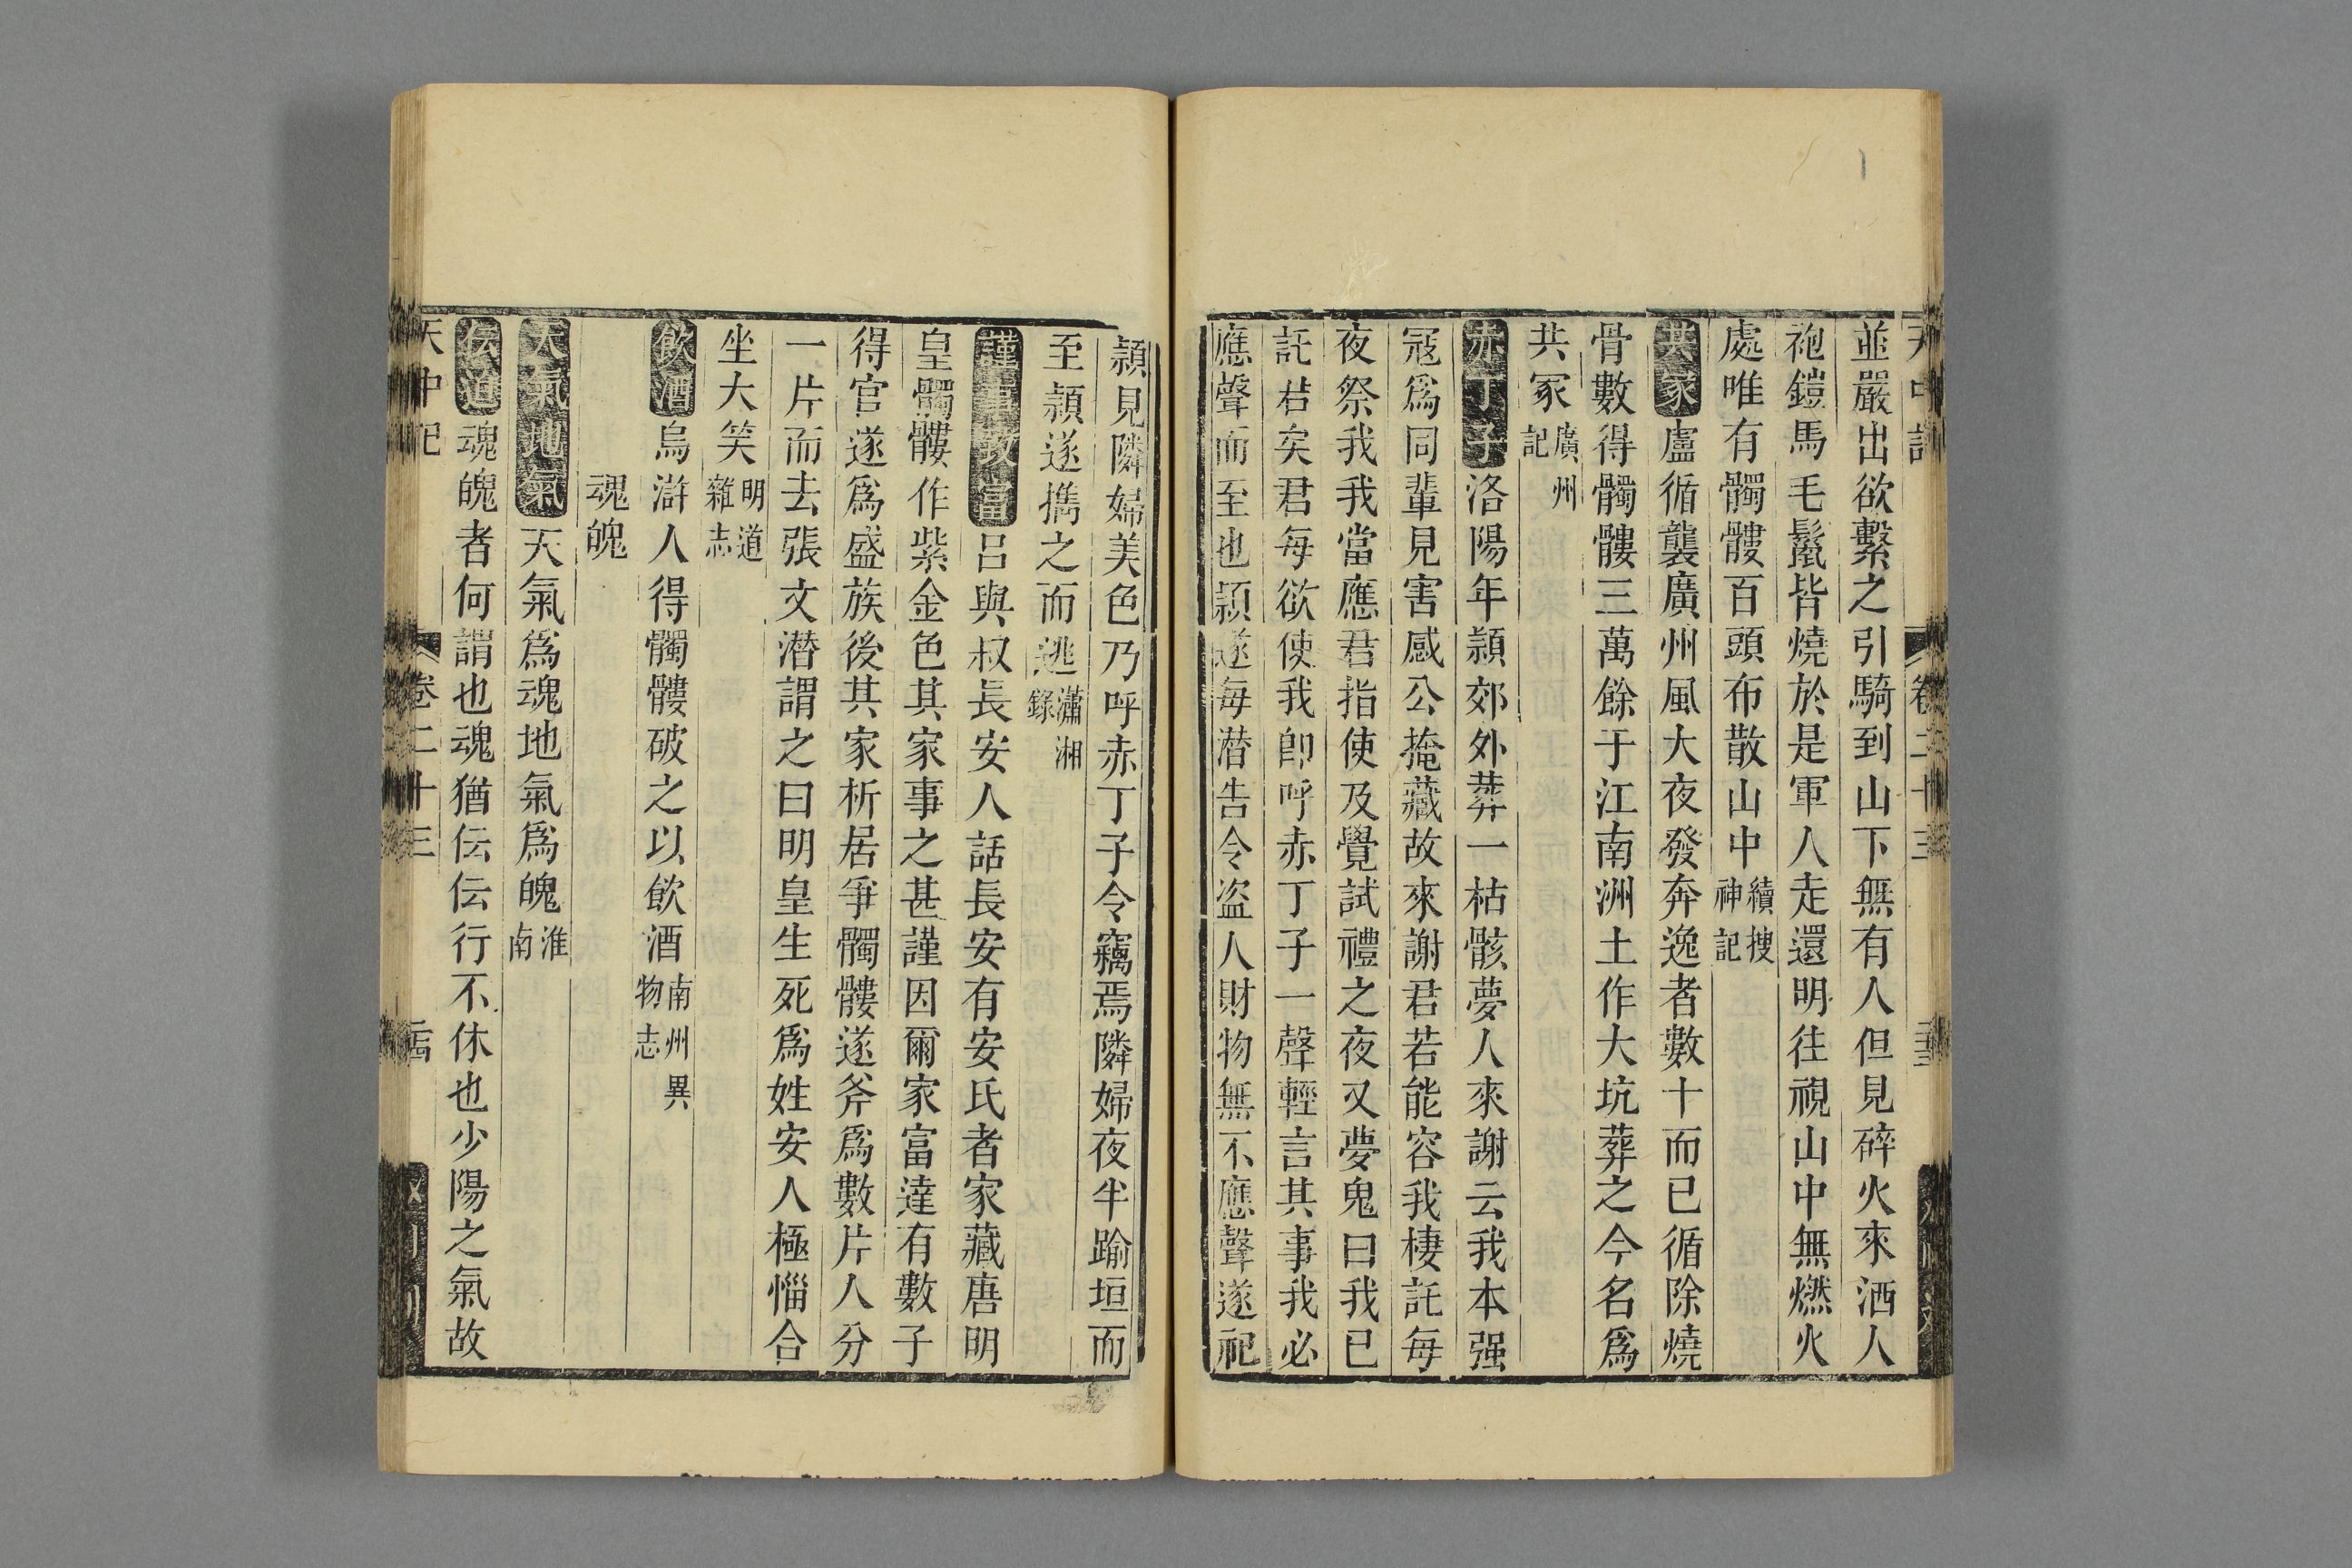 天中記
卷二十三
並嚴出欲繫之引騎到山下無有人但見碎火來洒人
袍鎧馬毛鬣皆燒於是軍人走還明往視山中無燃火
處唯有髑髏百頭布散山中續搜神記
共冢盧循襲廣州風大夜發奔逸者數十而已循除燒
骨數得髑髏三萬餘于江南洲土作大坑葬之今名爲
共冢廣州記
赤丁子洛陽年頴郊外葬一枯骸夢人來謝云我本强
寇爲同輩見害感公掩藏故來謝君若能容我棲託每
夜祭我我當應君指使及覺試禮之夜又夢鬼曰我已
託君矣君每欲使我卽呼赤丁子一聲輕言其事我必
應聲而至也頴遂每潜告令盗人財物無不應聲遂祀
頴見隣婦美色乃呼赤丁子令竊焉隣婦夜半踰垣而
至頴遂擕之而逃瀟湘錄
謹事致富吕與叔長安人話長安有安氏者家藏唐明
皇髑髏作紫金色其家事之甚謹因爾家富達有數子
得官遂爲盛族後其家析居爭髑髏遂斧爲數片人分
一片而去張文潜謂之曰明皇生死爲姓安人極惱合
坐大笑明道雜志
飲酒烏滸人得髑髏破之以飲酒南州異物志
魂魄
天氣地氣天氣爲魂地氣爲魄淮南
伝迫魂魄者何謂也魂猶伝伝行不休也少陽之氣故
天中記
卷二十三